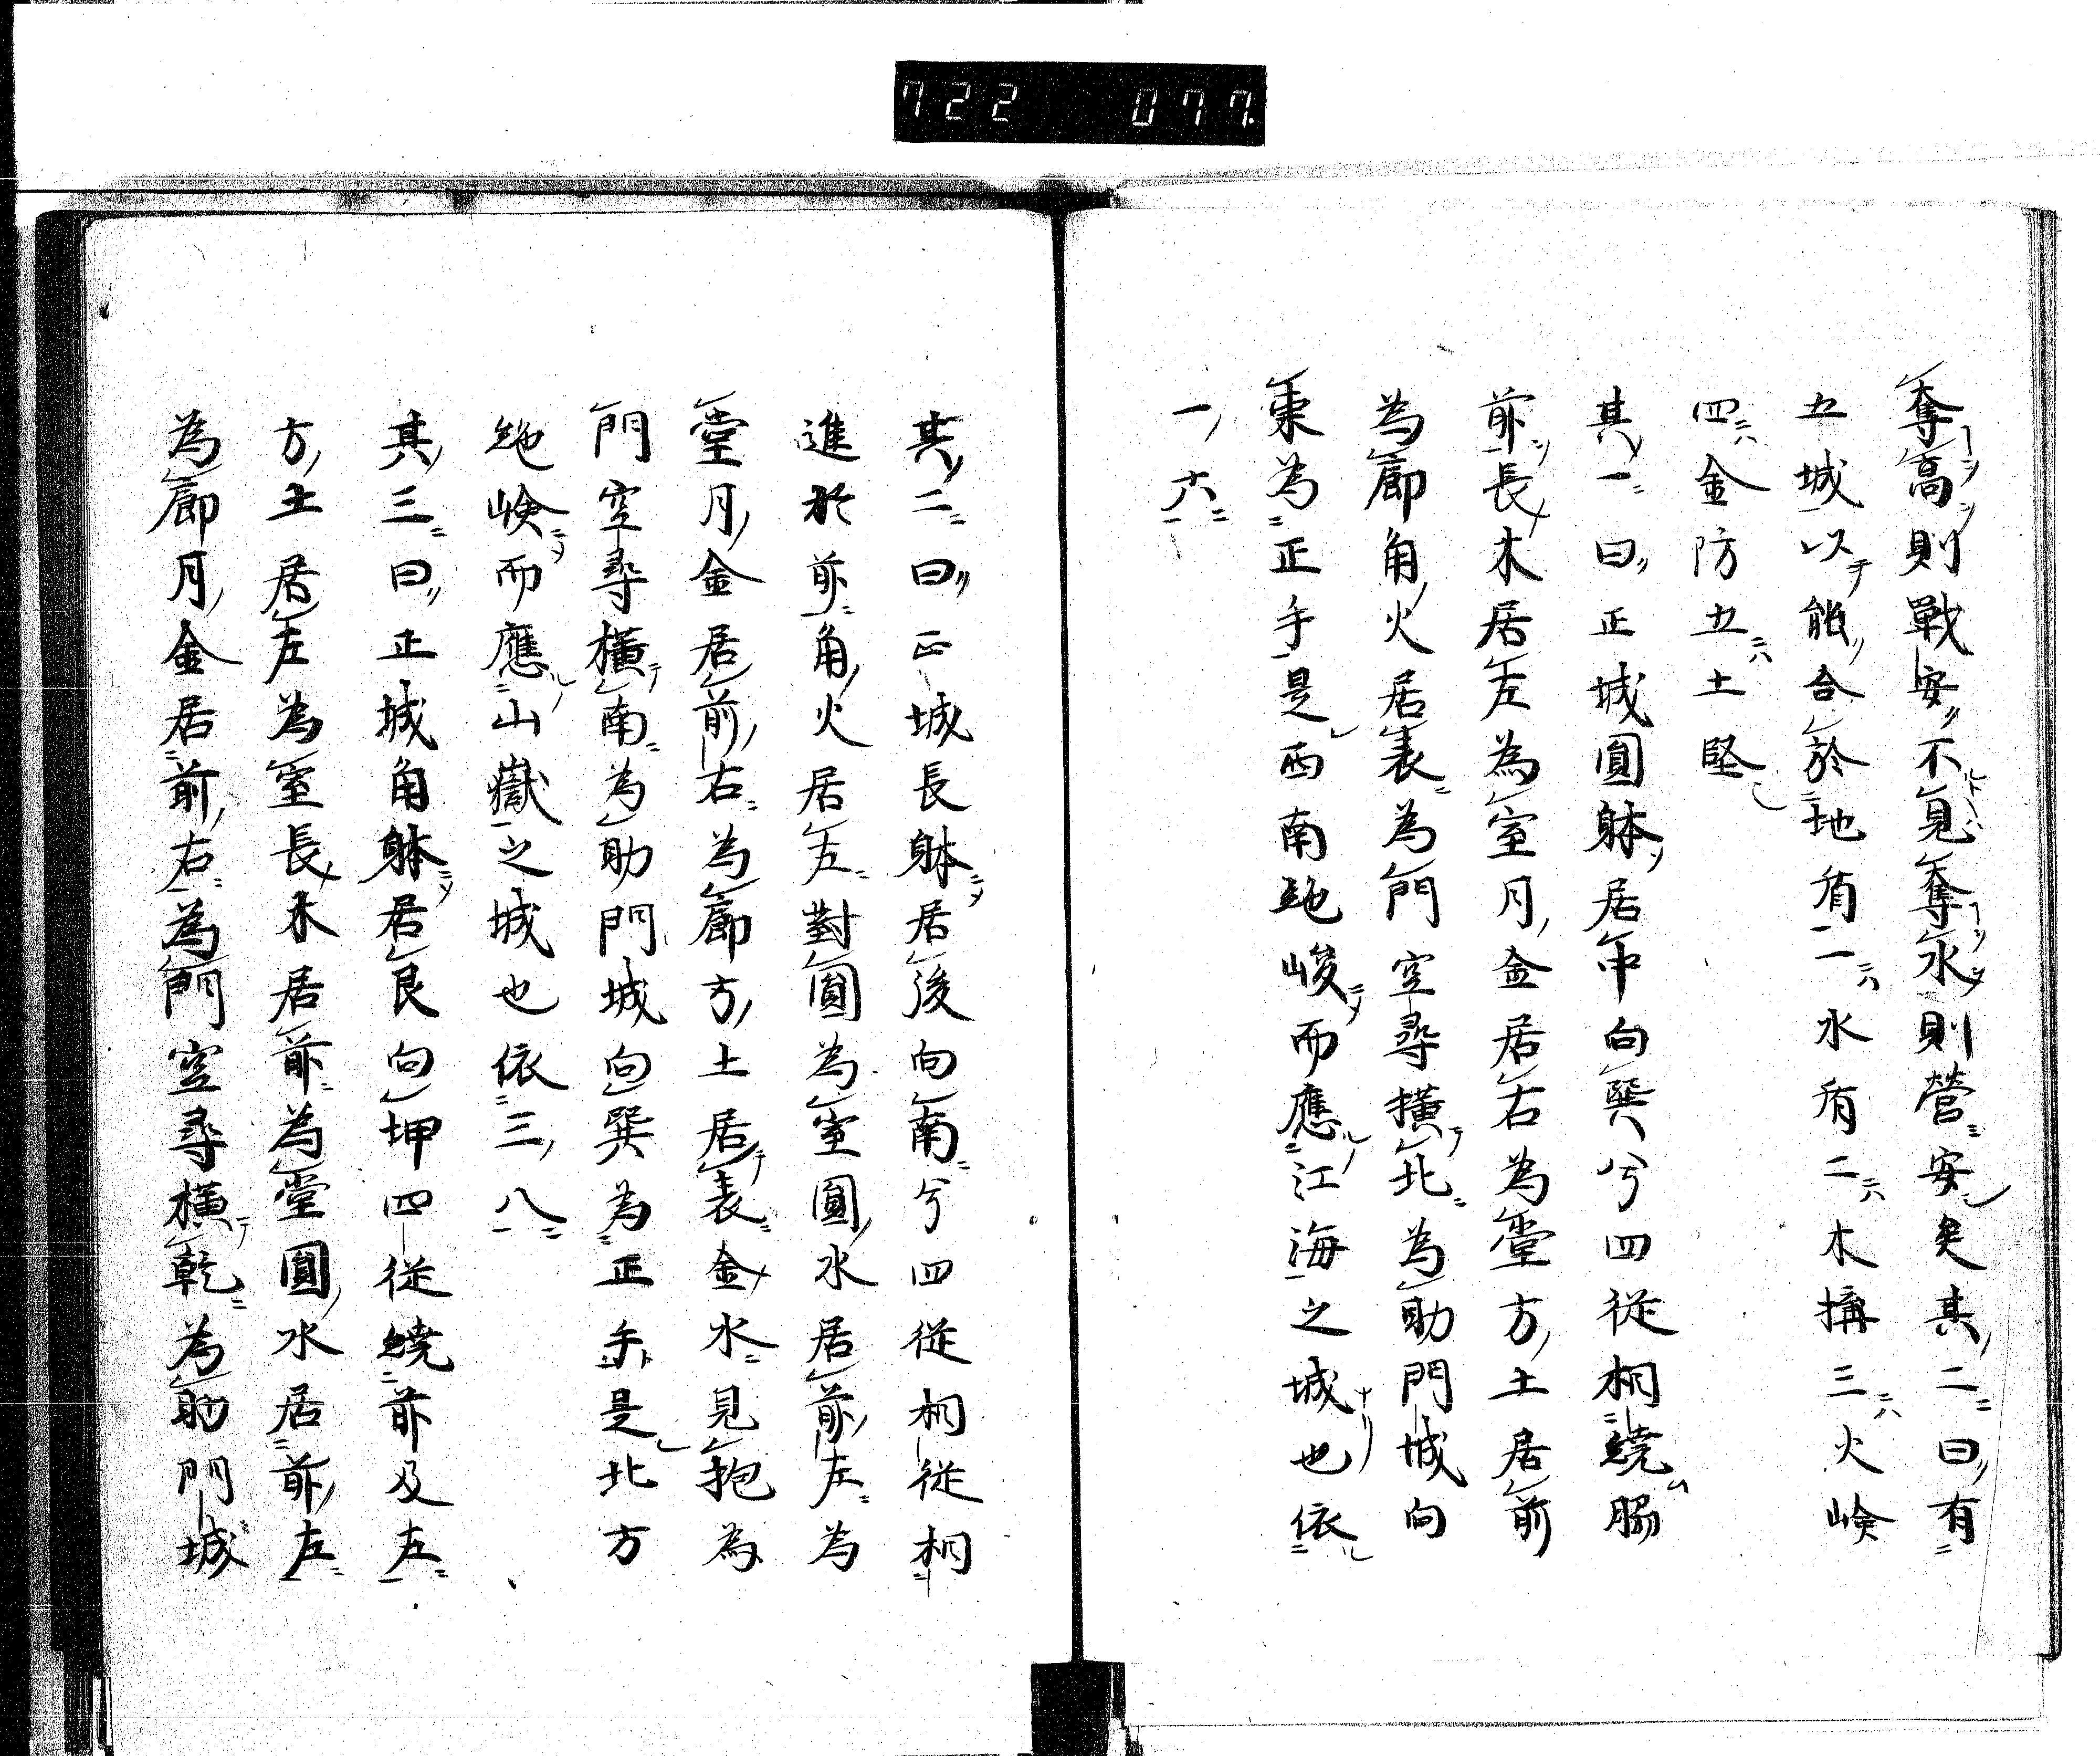 722 077.
奪高則戰安不見奪水則營安矣其二曰有
五城以能合於地有一水有二木構三火嶮
四金防五土堅
其一曰正城圓躰居中向巽兮四従桐繞腸
前長木居左為室月金居右為堂方土居前
為廊角火居表為門空尋横北為助門城向
東為正手是西南絶峻而應江海之城也依
一六
其二曰正城長躰居後向南兮四従桐従桐
進於前角火居左對圓為室圓水居前左為
堂月金居前右為廊方土居表金水見抱為
門空尋横南為助門城向巽為正手是北方
絶嶮而應山嶽之城也依三八
其三曰正城角躰居艮向坤四従繞前及左
方土居左為室長木居前為堂圓水居前左
為廊月金居前右為門空尋横乾為助門城